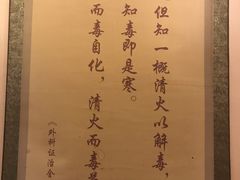 但知一概清火以解毒，
知毒即是寒。
而毒自化，清火而毒
《外科证治全